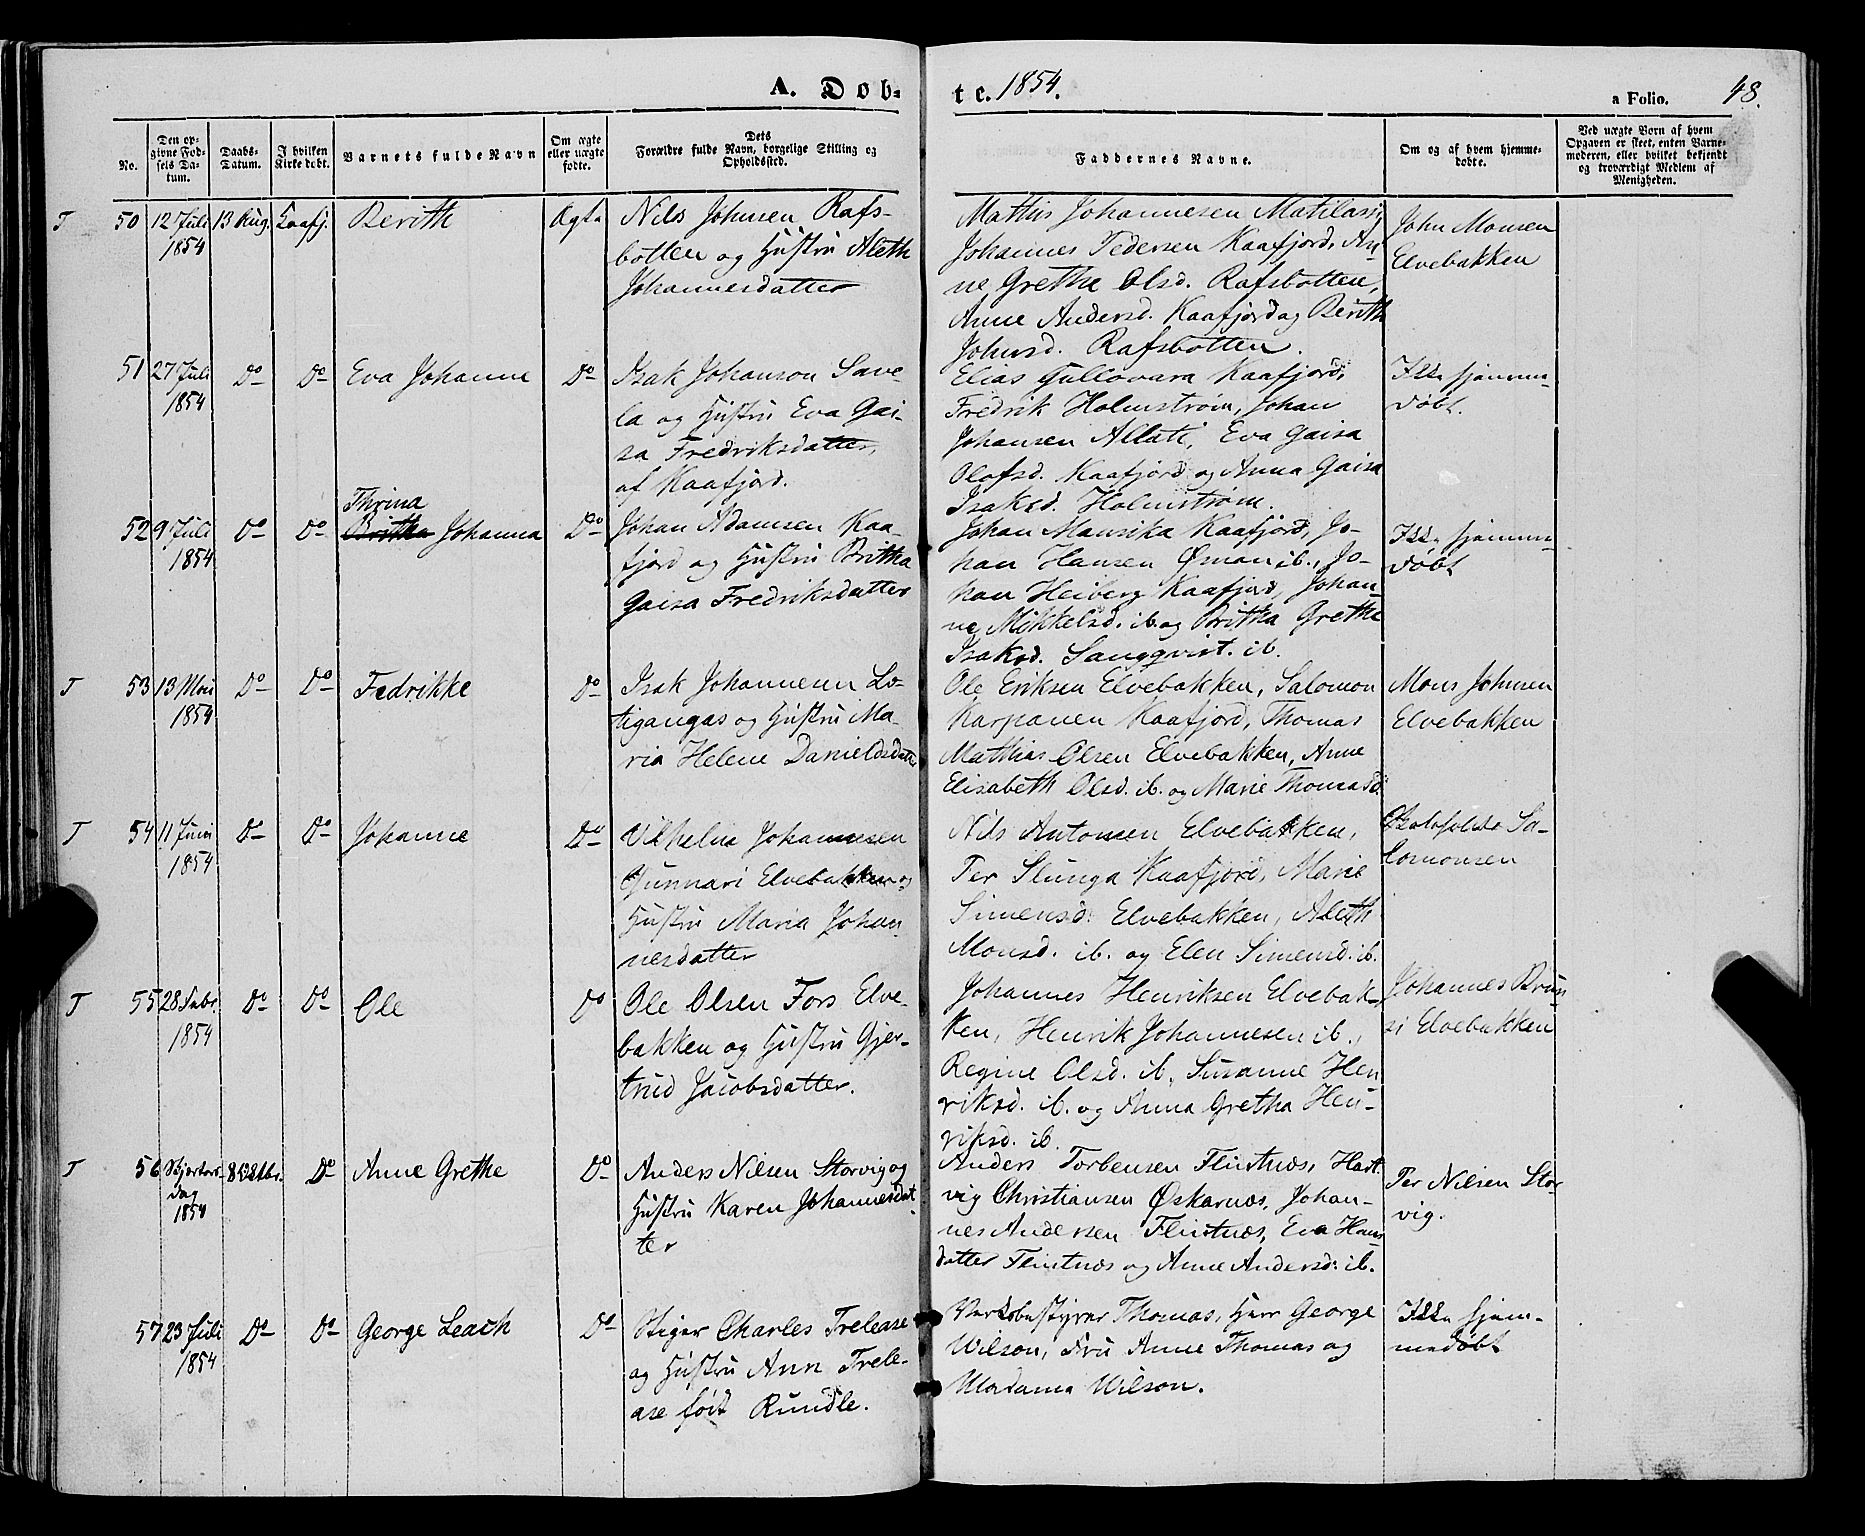 A. Dobte. 1854.
a Folio. 48.
No.
Den opgivne Fødsels Datum.
Daabs-Datum.
I hvilken Kirke døbt.
Varnets fulde Navn
Om ægte eller uægte fødte.
Dets Forældre fulde Navn, borgelige Stilling og Opholdssted.
Faddernes Navne.
Om og af hvem hjemmedøbte.
Ved uægte Børn af hvem Opgaven er skeet, enten Barnemoderen, eller hvilket bekjendt og troværdigt Medlem af Menigheden.
T 50 12 Juli 1854 13 Aug. Kaafj. Berith Ægte
Nils Johnsen Rafs-
botten og Hustru Aleth
Johannesdatter
Mathis Johannesen Matilasi,
Johannes Pedersen Kaafjord, An-
ne Grethe Olsd. Rafsbotten,
Anne Andersd. Kaafjord og Berith
Johnsd. Rafsbotten.
John Monsen
Elvebakken
51 27 Juli 1854 Do Do Eva Johanne Do
Isak Johanson Save-
la og Hustru Eva Gai-
sa Fredriksdatter,
af Kaafjord.
Elias Gullovara Kaafjord,
Fredrik Holmstrøm, Johan
Johansen Allati, Eva Gaisa
Olofsd. Kaafjord og Anna Gaisa
Isaksd. Holmstrøm.
Ikke hjemme-
døbt.
52 9 Juli 1854 Do Do
Thrina
Britha Johanna Do
Johan Adamsen Kaa-
fjord og Hustru Britha
Gaisa Fredriksdatter
Johan Mansika Kaafjord, Jo-
han Hansen Øman ib., Jo-
han Heiberg Kaafjord, Johan-
ne Mikkelsd. ib. og Britha Grethe
Isaksd. Sangqvist. ib.
Ikke hjemme-
døbt
T 53 13 Mai 1854 Do Do Fedrikke Do
Isak Johannesen Lo-
tigangas og Hustru Ma-
ria Helene Danieldsdatter
Ole Eriksen Elvebakken, Salomon
Karpanen Kaafjord, Thomas
Mathias Olsen Elvebakken, Anne
Elisabeth Olsd. ib. og Marie Thomasd.
Mons Johnsen
Elvebakken
T 54 11 Juni 1854 Do Do Johanne Do
Vilhelm Johannesen
Gunnari Elvebakken og
Hustru Maria Johan-
nesdatter
Nils Antonsen Elvebakken,
Per Slunga Kaafjord, Marie
Simensd. Elvebakken, Aleth
Monsd. ib. og Elen Simensd. ib.
Sa-
lomonsen
T 55 28 Febr. 1854 Do Do Ole Do
Ole Olsen Fors Elve-
bakken og Hustru Gjer-
trud Jacobsdatter.
Johannes Henriksen Elvebak-
ken, Henrik Johannesen ib.,
Regine Olsd. ib., Susanne Hen
riksd. ib. og Anna Gretha Hen-
riksd. ib.
Johannes Brun
si Elvebakken
T 56 Skjærtors-
dag
1854 8 Octbr. Do Anne Grethe Do
Anders Nilsen Storvig og
Hustru Karen Johannesdat
ter
Anders Torbensen Flintnæs, Hart
vig Christiansen Øskarnæs, Johan-
nes Andersen Flintnæs, Eva Hans
datter Flintnæs og Anne Andersd. ib.
Per Nilsen Stor
vig.
57 23 Juli 1854 Do Do George Leach Do
Stiger Charles Trelease
og Hustru Ann Trele-
ase født Rundle.
Verksbestyrer Thomas, Herr George
Wilson, Fru Anne Thomas og
Madame Wilson.
Ikke hjem-
medøbt